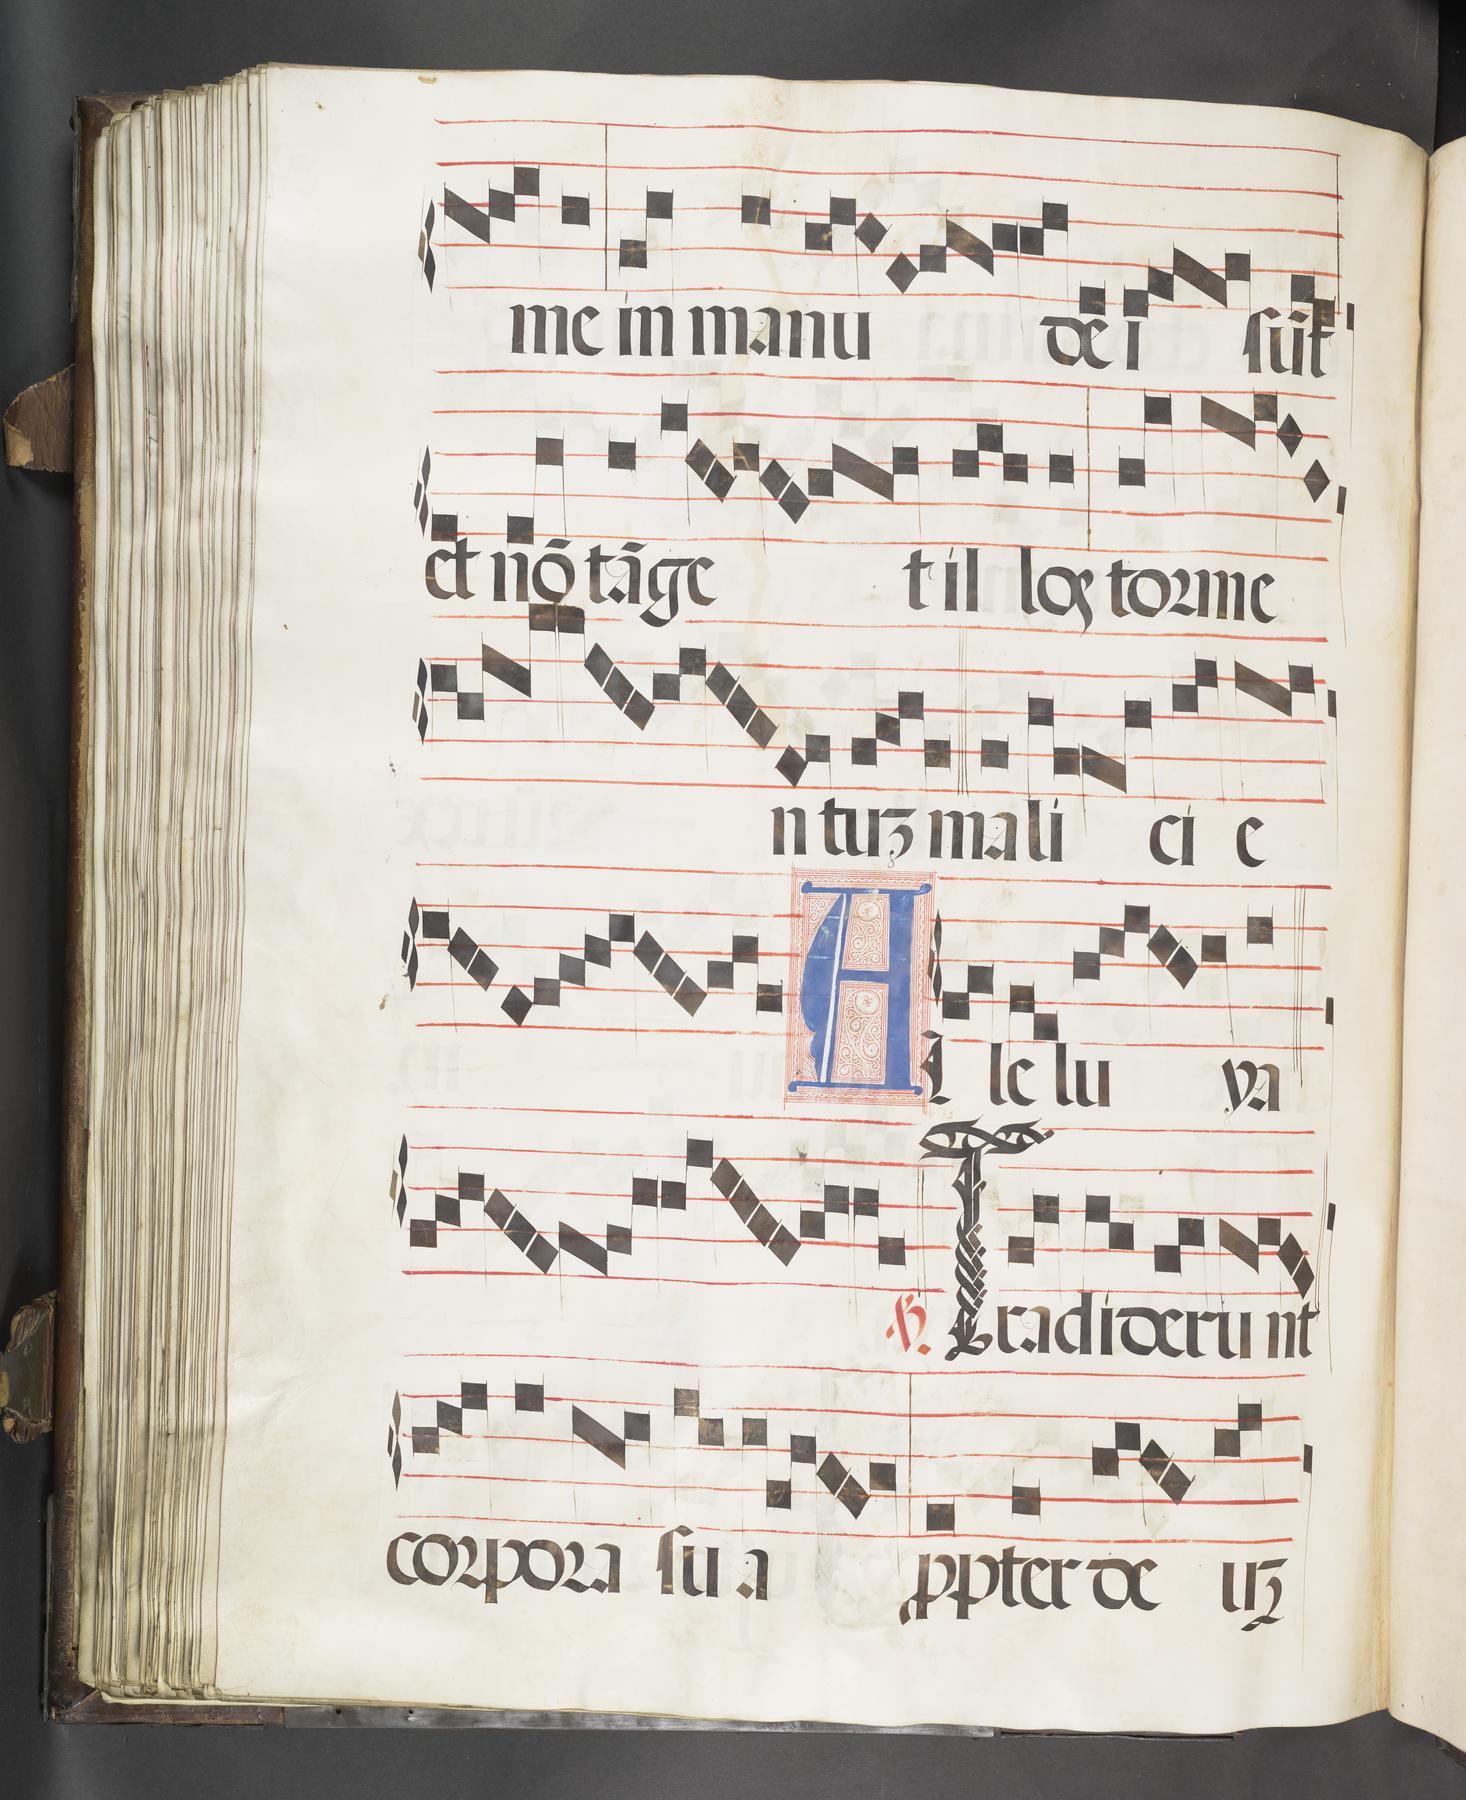 me in manu dei sūt
et nō tāge t il loꝝ torme
n tuʒ mali ci e
A l le lu ya
℣. Tradiderunt
corpora su a ꝓpter de uʒ